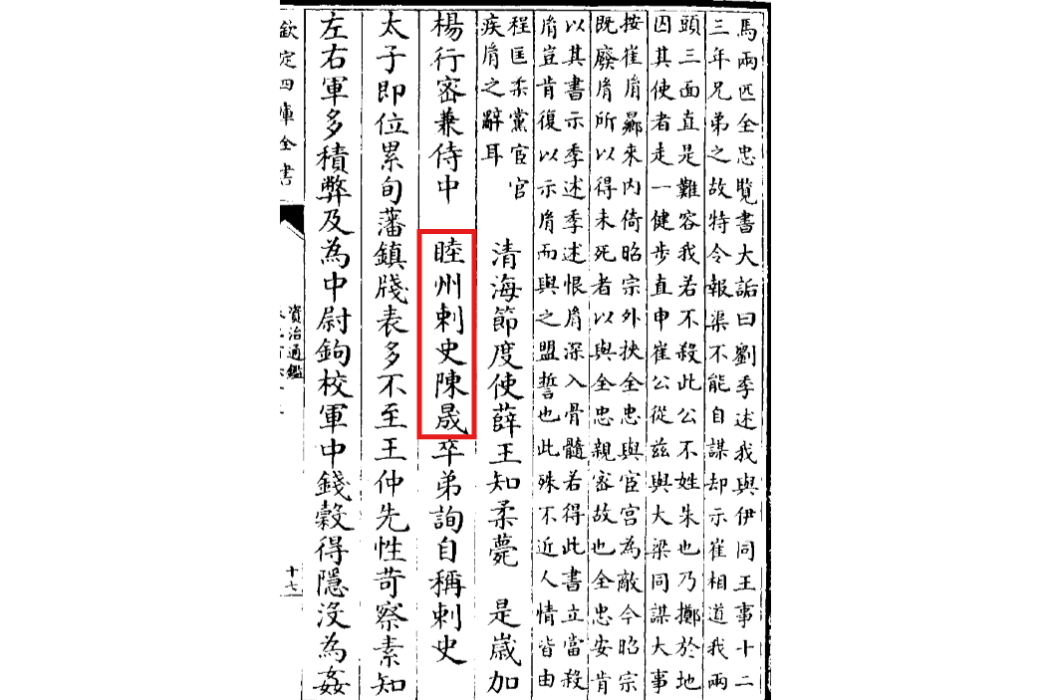 馬兩匹全忠覽書大詬曰劉季述我與伊同王事十二
三年兄弟之故特令報渠不能自謀却示崔相道我兩
頭三面直是難容我若不殺此公不姓朱也乃擲於地
囚其使者走一健步直申崔公從兹與大梁同謀大事
按崔胤曏來内倚昭宗外挾全忠與宦宫為敵今昭宗
既廢胤所以得未死者以與全忠親宻故也全忠安肯
以其書示季述季述恨胤深入骨髓若得此書立當殺
胤豈肯復以示胤而與之盟誓也此殊不近人情皆由
程匡柔黨宦官
疾胤之辭耳
清海節度使薛王知柔薨 是嵗加
楊行宻兼侍中 睦州刺史陳晟卒弟詢自稱刺史
太子即位累旬藩鎮牋表多不至王仲先性苛察素知
左右軍多積弊及為中尉鉤校軍中錢榖得隱没為姦
欽定四庫全書
資治通鑑
十七